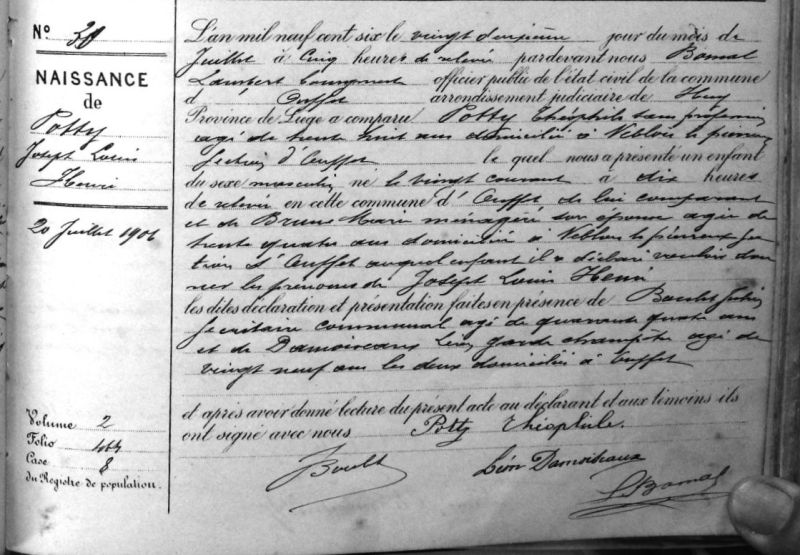 N°
NAISSANCE
de
Potty
Joseph Louis
Henri
20 Juillet 1906
Volume 2
Folio 464
Case 8
du Registre de population.
L'an mil neuf cent six le vingt deuxième jour du mois de
Juillet à Cinq heures de relevée pardevant nous Bomal
Lambert bourgmestre officier public de l'état civil de la commune
d' Ouffet arrondissement judiciaire de Huy
Province de Liége a comparu Potty Théophile sans profession
agé de trente huit ans domicilié à Néblon le pierreux
section d'Ouffet le quel nous a présenté un enfant
du sexe masculin né le vingt courant à dix heures
de relevée en cette commune d' Ouffet de lui comparant
et de Brune Marie ménagère son épouse agée de
trente quatre ans domiciliée à Néblon le pierreux sec
tion d'Ouffet auquel enfant il a déclaré vouloir don
ner les prénoms de Joseph Louis Henri
les dites déclaration et présentation faites en présence de Boulet
secrétaire communal agé de quarante quatre ans
et de Damoiseaux Léon garde champêtre agé de
vingt neuf ans les deux domiciliés à Ouffet
et après avoir donné lecture du présent acte au déclarant et aux témoins ils
ont signé avec nous Potty Théophile.
Boulet Léon Damoiseaux
L Bomal